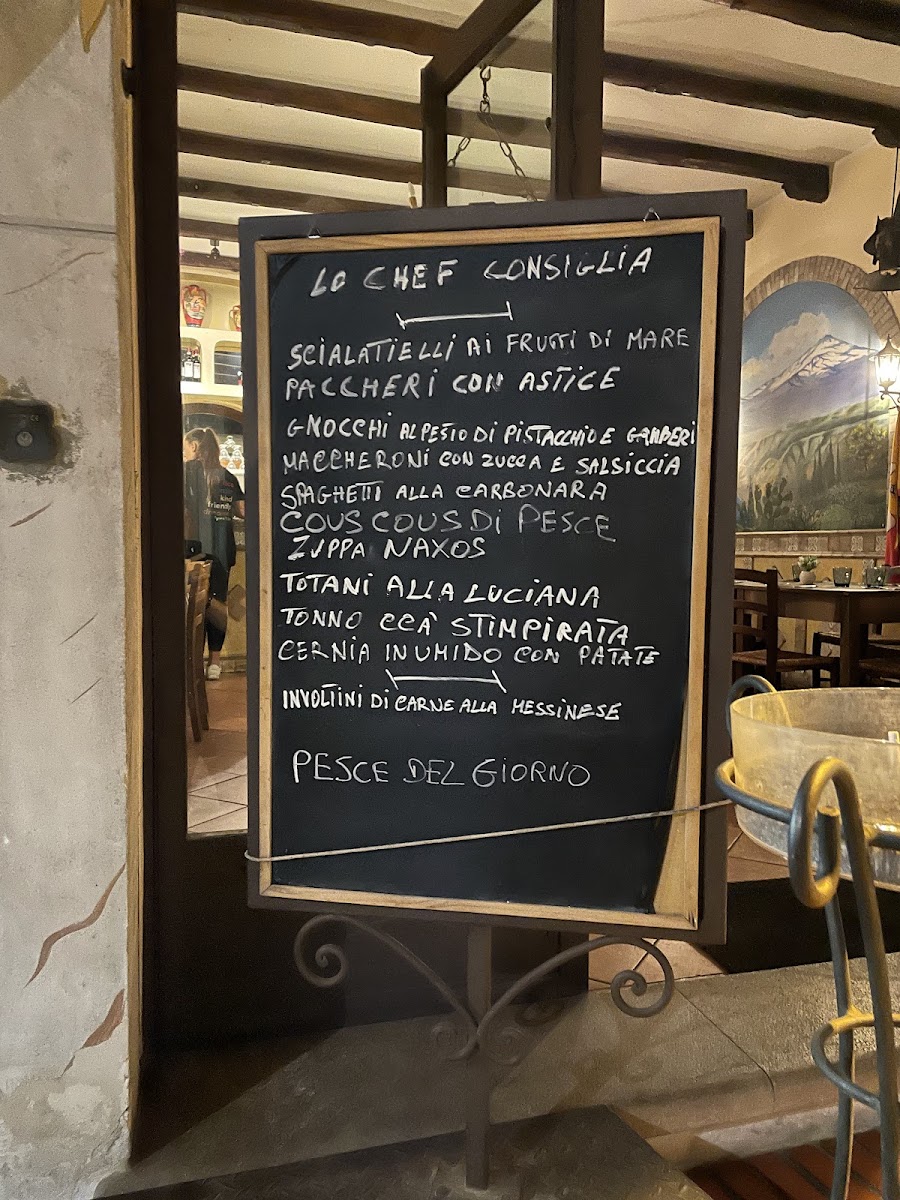 LO CHEF CONSIGLIA
SCIALATIELLI AI FRUTTI DI MARE
PACCHERI CON ASTICE
GNOCCHI AL PESTO DI PISTACCHIO E GAMBERI
MACCHERONI CON ZUCCA E SALSICCIA
SPAGHETTI ALLA CARBONARA
COUS COUS DI PESCE
ZUPPA NAXOS
TOTANI ALLA LUCIANA
TONNO CCÀ STIMPIRATA
CERNIA IN UMIDO CON PATATE
INVOLTINI DI CARNE ALLA MESSINESE
PESCE DEL GIORNO
kind
friendly